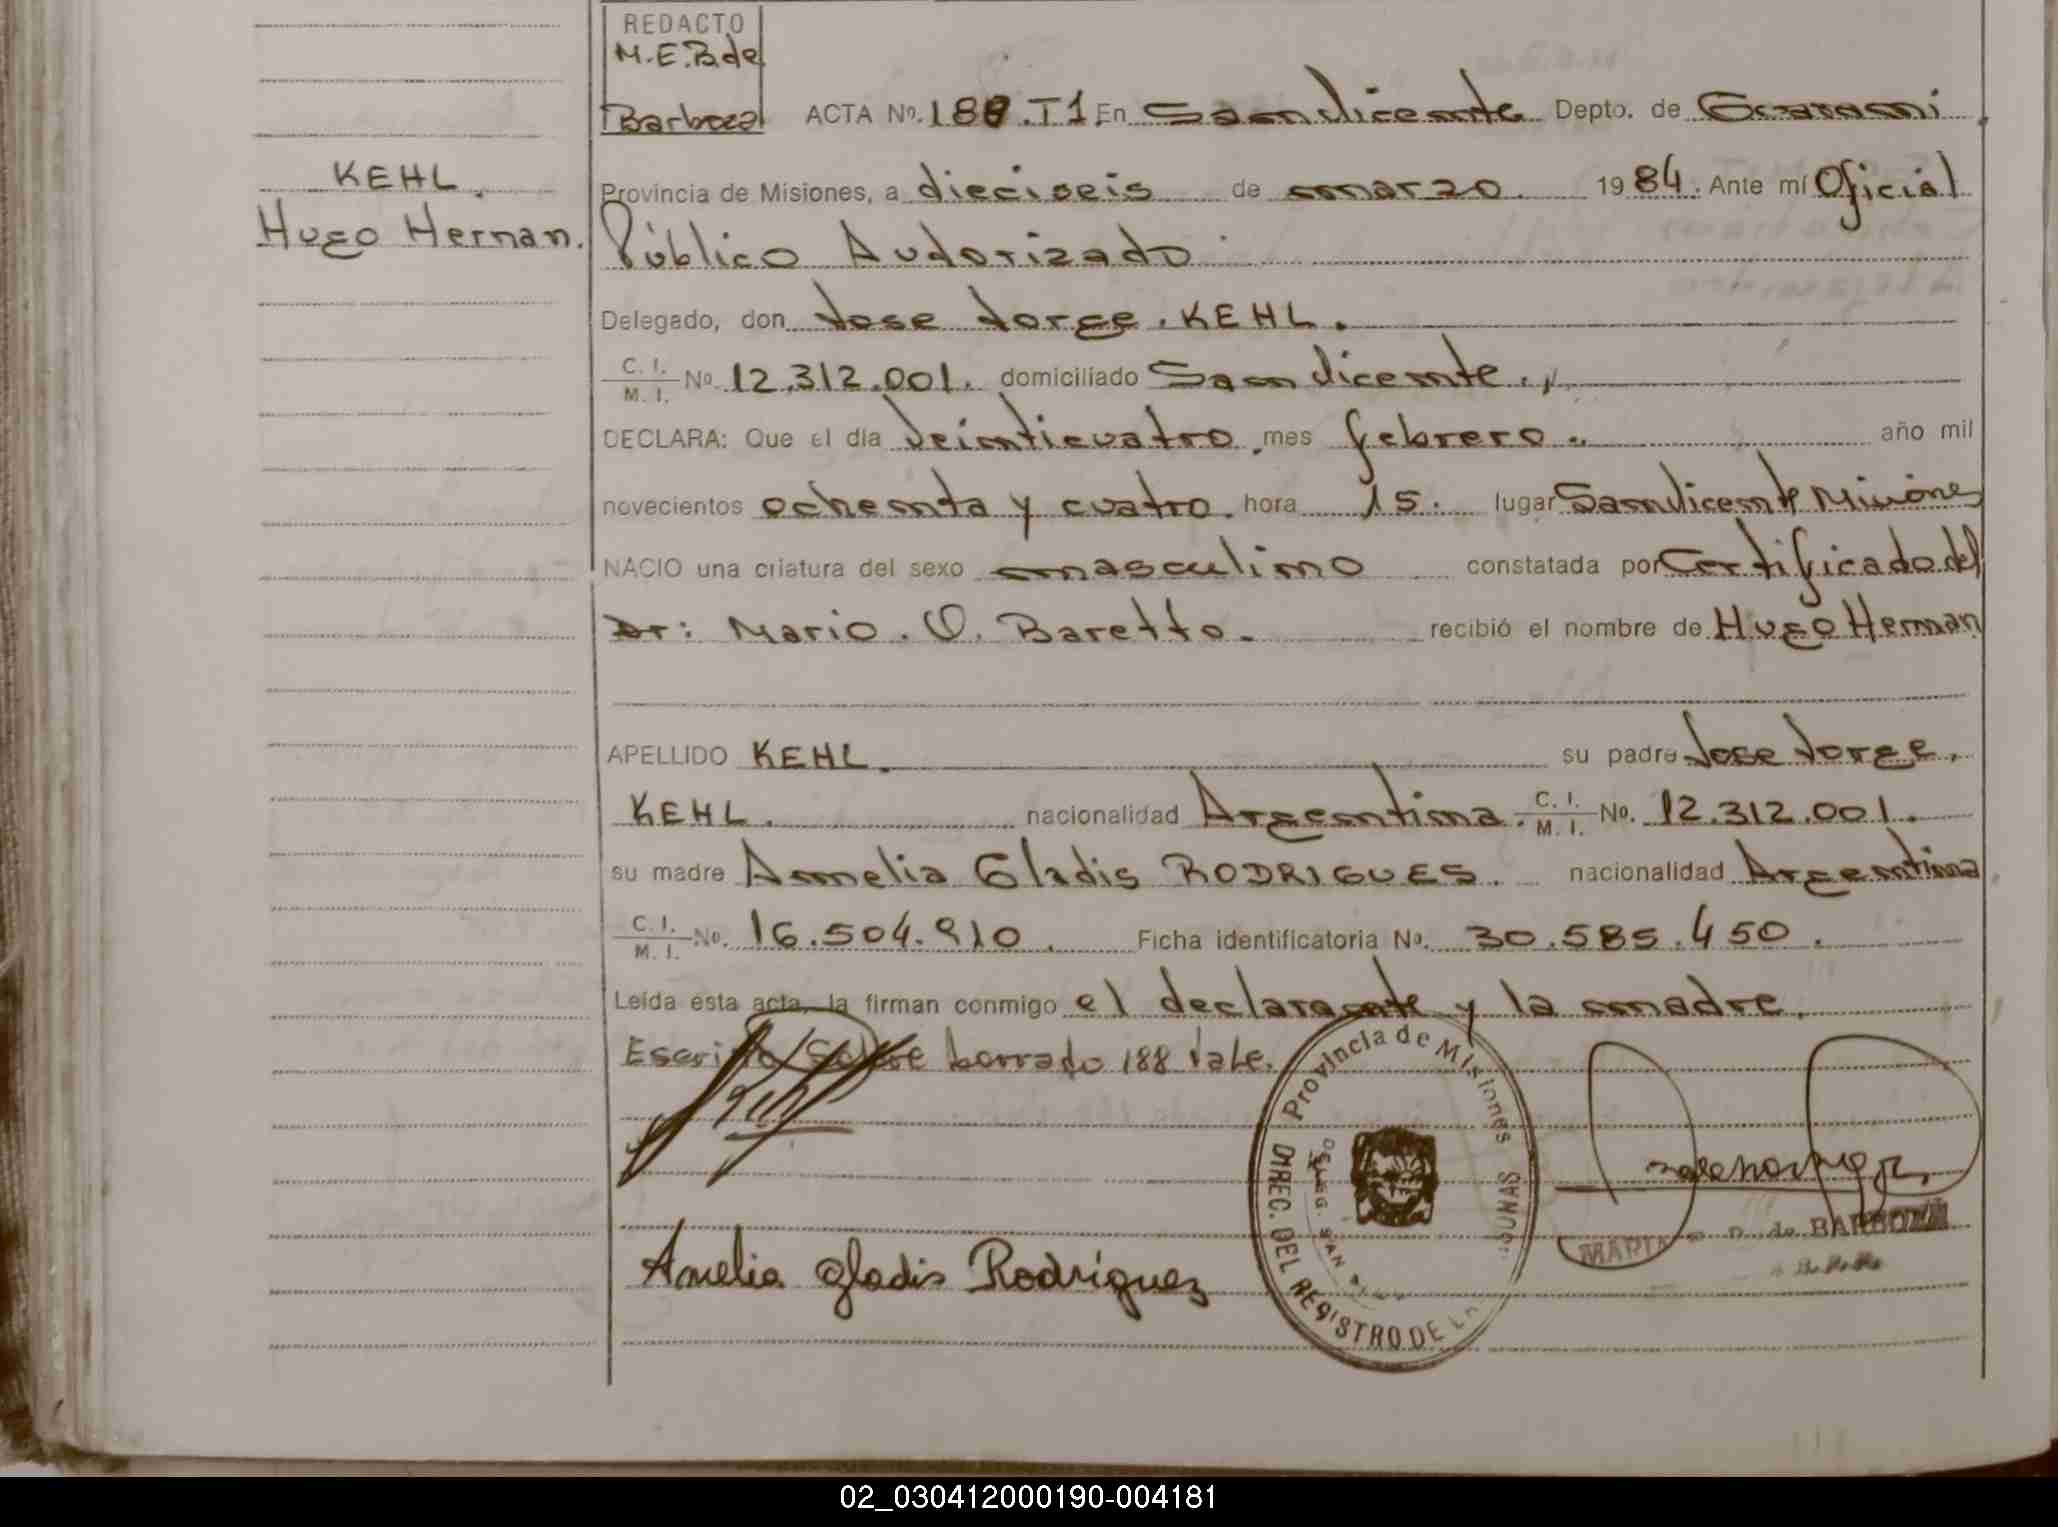 REDACTO
M.E.B.de
Barboza
ACTA Nº. 188.T1 En San Vicente Depto. de Guarani
KEHL.
Hugo Hernan.
Provincia de Misiones, a dieciseis de marzo. 1984. Ante mí Oficial
Público Autorizado
Delegado, don Jose Jorge. KEHL.
C. I. / M. I. Nº. 12.312.001. domiciliado San Vicente.
DECLARA: Que el día Veinticuatro, mes febrero. año mil
novecientos ochenta y cuatro. hora 15. lugar San Vicente Misiones
NACIO una criatura del sexo masculino constatada por Certificado del
Dr: Mario. O. Baretto. recibió el nombre de Hugo Hernan
APELLIDO KEHL. su padre Jose Jorge.
KEHL. nacionalidad Argentina. C. I. / M. I. Nº. 12.312.001.
su madre Amelia Gladis RODRIGUES. nacionalidad Argentina
C. I. / M. I. Nº. 16.504.910. Ficha identificatoria Nº. 30.585.450.
Leída esta acta, la firman conmigo el declarante y la madre.
Escrito Sobre borrado 188 Vale.
Provincia de Misiones
DIREC. DEL REGISTRO DE
DELEG. SAN
MARIA B. de BARBOZA
Amelia Gladis Rodríguez
02_030412000190-004181